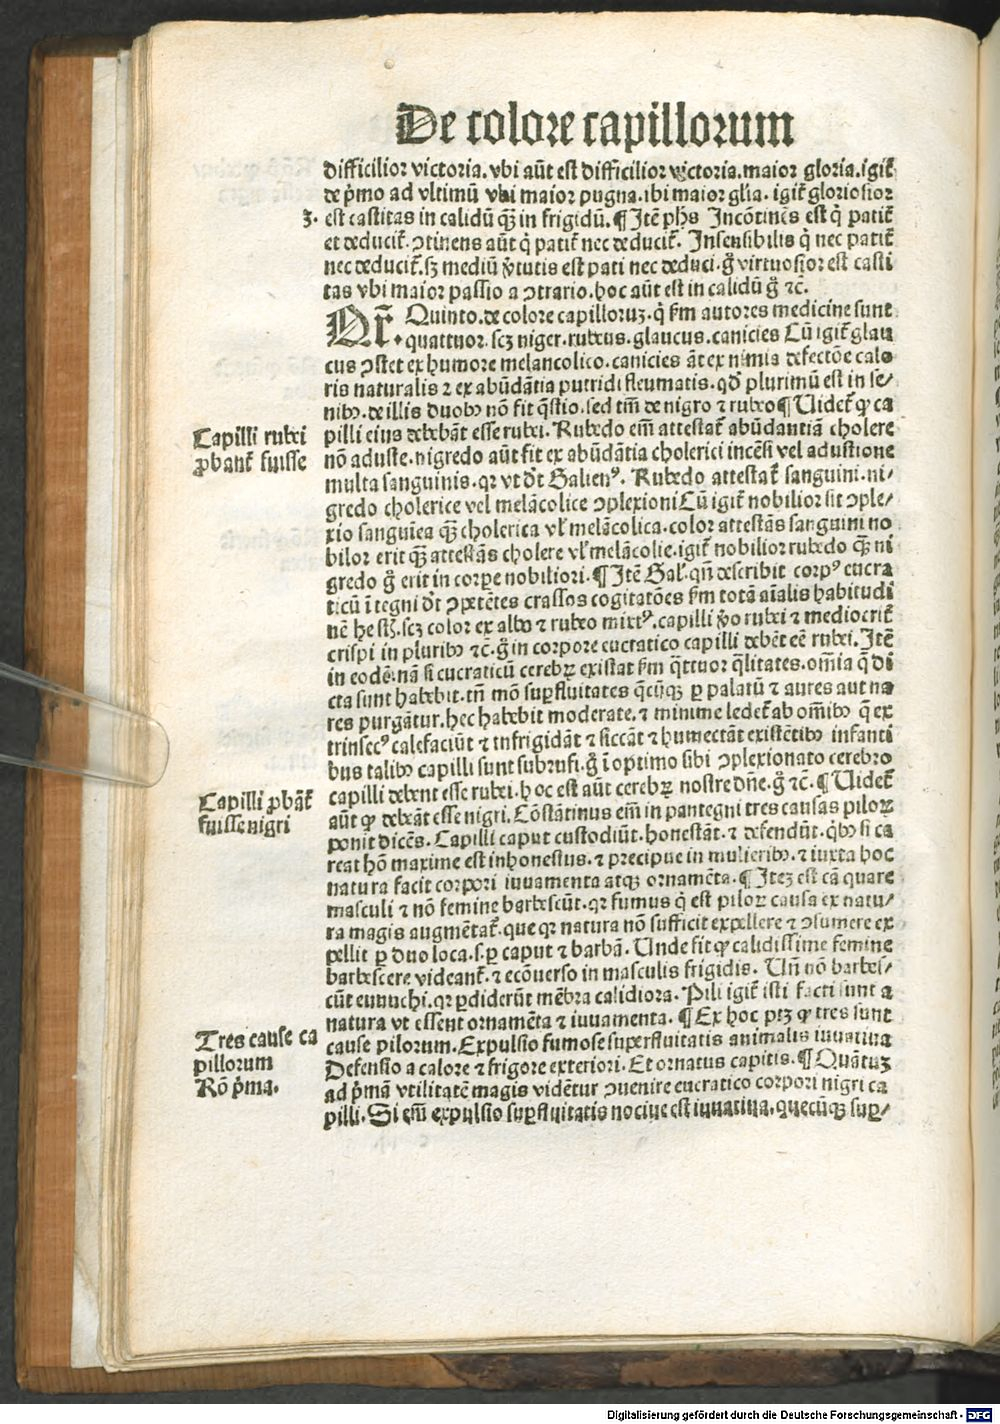 De colore capillorum
difficilior victoria. vbi aūt est difficilior victoria. maior gloria. igit᷑
de p̄mo ad vltimū vbi maior pugna. ibi maior gl̄ia. igit᷑ gloriosior
3. est castitas in calidū qꝫ in frigidū. ¶ Itē ph̄s Incōtinēs est q̇ patit᷑
et deducit᷑. ꝯtinens aūt q̇ patit᷑ nec deducit᷑. Insensibilis q̇ nec patit᷑
nec deducit᷑. sꝫ mediū v̓tutis est pati nec deduci. g̊ virtuosior est casti
tas vbi maior passio a ꝯtrario. hoc aūt est in calidū g̊ ⁊c̄.
Quinto. de colore capilloruꝫ. q̇ s̄m autores medicine sunt
quattuor. scꝫ niger. rubeus. glaucus. canicies Cū igit᷑ glau
cus ꝯstet ex humore melancolico. canicies āt ex nimia defectōe calo
ris naturalis ⁊ ex abūdātia putridi fleumatis. qd̓ plurimū est in se/
nibꝰ. de illis duobꝰ nō fit q̄stio. sed tm̄ de nigro ⁊ rubeo ¶ Uidet᷑ ꝙ ca
Capilli rubei
ꝓbant᷑ fuisse
pilli eius debebāt esse rubei. Rubedo em̄ attestat᷑ abūdantiā cholere
nō aduste. nigredo aūt fit ex abūdātia cholerici incēsi vel adustione
multa sanguinis. qꝛ vt dt̓ Galienꝰ. Rubedo attestat᷑ sanguini. ni/
gredo cholerice vel melācolice ꝯplexioni Cū igit᷑ nobilior sit ꝯple/
xio sanguīea qꝫ cholerica vl̓ melācolica. color attestās sanguini no
bilor erit qꝫ attestās cholere vl̓ melācolie. igit᷑ nobilior rubedo qꝫ ni
gredo g̊ erit in corpe nobiliori. ¶ Itē Gal̓. qn̄ describit corpꝰ eucra
ticū ī tegni dt̓ ꝯpetētes crassos cogitatōes s̄m totā aīalis habitudi
nē he st̄. scꝫ color ex albo ⁊ rubeo mixtꝰ. capilli v̓o rubei ⁊ mediocrit᷑
crispi in pluribꝰ ⁊c̄. g̊ in corpore eucratico capilli debēt eē rubei. Itē
in eodē. nā si eucraticū cerebꝝ existat s̄m q̄ttuor q̄litates. om̄ia q̄ di
cta sunt habebit. tn̄ mō suꝑfluitates q̄cūqꝫ ꝑ palatū ⁊ aures aut na
res purgātur. hec habebit moderate. ⁊ minime ledet᷑ ab om̄ibꝰ q̄ ex
trinsecꝰ calefaciūt ⁊ infrigidāt ⁊ siccāt ⁊ humectāt existētibꝰ infanti
bus talibꝰ capilli sunt subrufi. g̊ ī optimo sibi ꝯplexionato cerebro
Capilli ꝓbāt᷑
fuisse nigri
capilli debent esse rubei. hoc est aūt cerebꝝ nostre dn̄e. g̊ ⁊c̄. ¶ Uidet᷑
aūt ꝙ debeāt esse nigri. Cōstātinus em̄ in pantegni tres causas piloꝝ
ponit dicēs. Capilli caput custodiūt. honestāt. ⁊ defendūt. q̇bꝰ si ca
reat hō maxime est inhonestus. ⁊ precipue in mulieribꝰ. ⁊ iuxta hoc
natura facit corpori iuuamenta atqꝫ ornamēta. ¶ Iteꝫ est cā quare
masculi ⁊ nō femine barbescūt. qꝛ fumus q̇ est piloꝝ causa ex natu/
ra magis augmētat᷑. que qꝛ natura nō sufficit expellere ⁊ ꝯsumere ex
pellit ꝑ duo loca. s. ꝑ caput ⁊ barbā. Unde fit ꝙ calidissime femine
barbescere videant᷑. ⁊ ecōuerso in masculis frigidis. Un̄ nō barbes/
cūt eunuchi. qꝛ ꝑdiderūt mēbra calidiora. Pili igit᷑ isti facti sunt a
natura vt essent ornamēta ⁊ iuuamenta. ¶ Ex hoc ptꝫ ꝙ tres sunt
Tres cause ca
pillorum
Rō p̄ma.
cause pilorum. Expulsio fumose superfluitatis animalis iuuatiua
Defensio a calore ⁊ frigore exteriori. Et ornatus capitis. ¶ Quātuꝫ
ad p̄mā vtilitatē magis vidētur ꝯuenire eucratico corpori nigri ca
pilli. Si em̄ expulsio suꝑfluitatis nociue est iuuatiua. quecūqꝫ suꝑ/
Digitalisierung gefördert durch die Deutsche Forschungsgemeinschaft - DFG